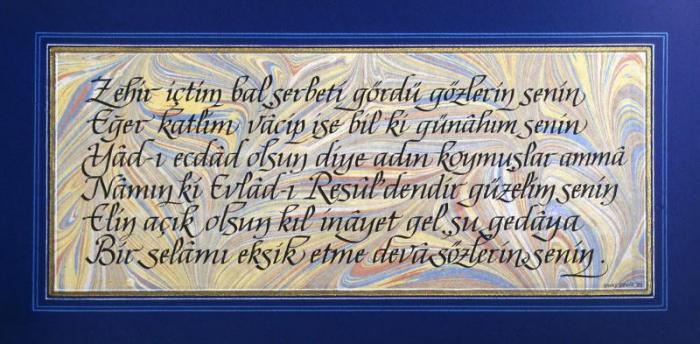 Zehir içtim bal şerbeti gördü gözlerin senin
Eğer katlim vâcip ise bil ki günâhım senin
Yâd-ı ecdâd olsun diye adın koymuşlar ammâ
Nâmın ki Evlâd-ı Resûl'dendir güzelim senin
Elin açık olsun kıl inâyet gel şu gedâya
Bir selâmı eksik etme devâ sözlerin senin.